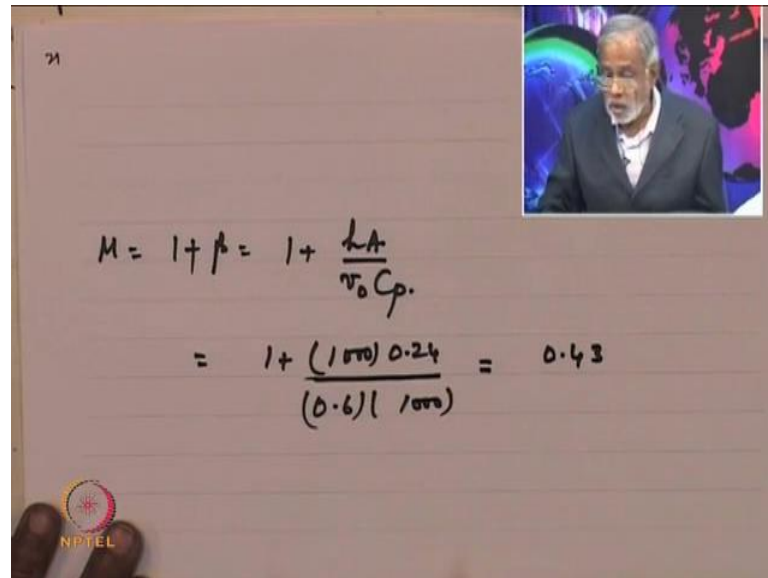 M = 1 + β = 1 + hA / v₀ Cp.
= 1 + (1000) 0.24 / (0.6) (1000) = 0.43
NPTEL